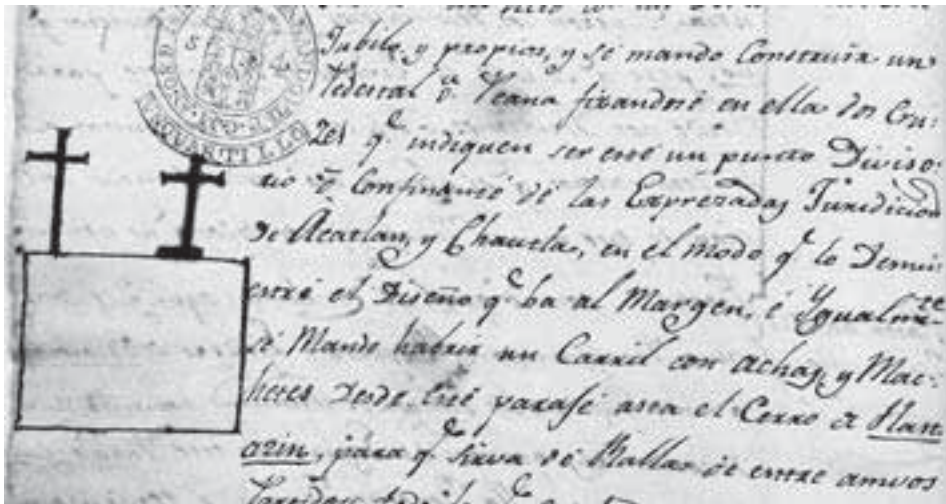 Jubilo, y propios, y se mando Construir un
Pedestal ō Peana fixandose en ella dos Cru-
zes q.e indiquen ser este un punto Diviso-
rio ō Confinante de las Exprezadas Juridicion
de Acatlan, y Chautla, en el modo q.e lo Demu
estra el Diseño q.e ba al Margen, è Ygualm.te
se Mando habrir un Carril con achas, y Mac-
hetes Desde este parage asia el Cerro de
para q.e sirva de Rallar de entre amvos
CUARTILLO